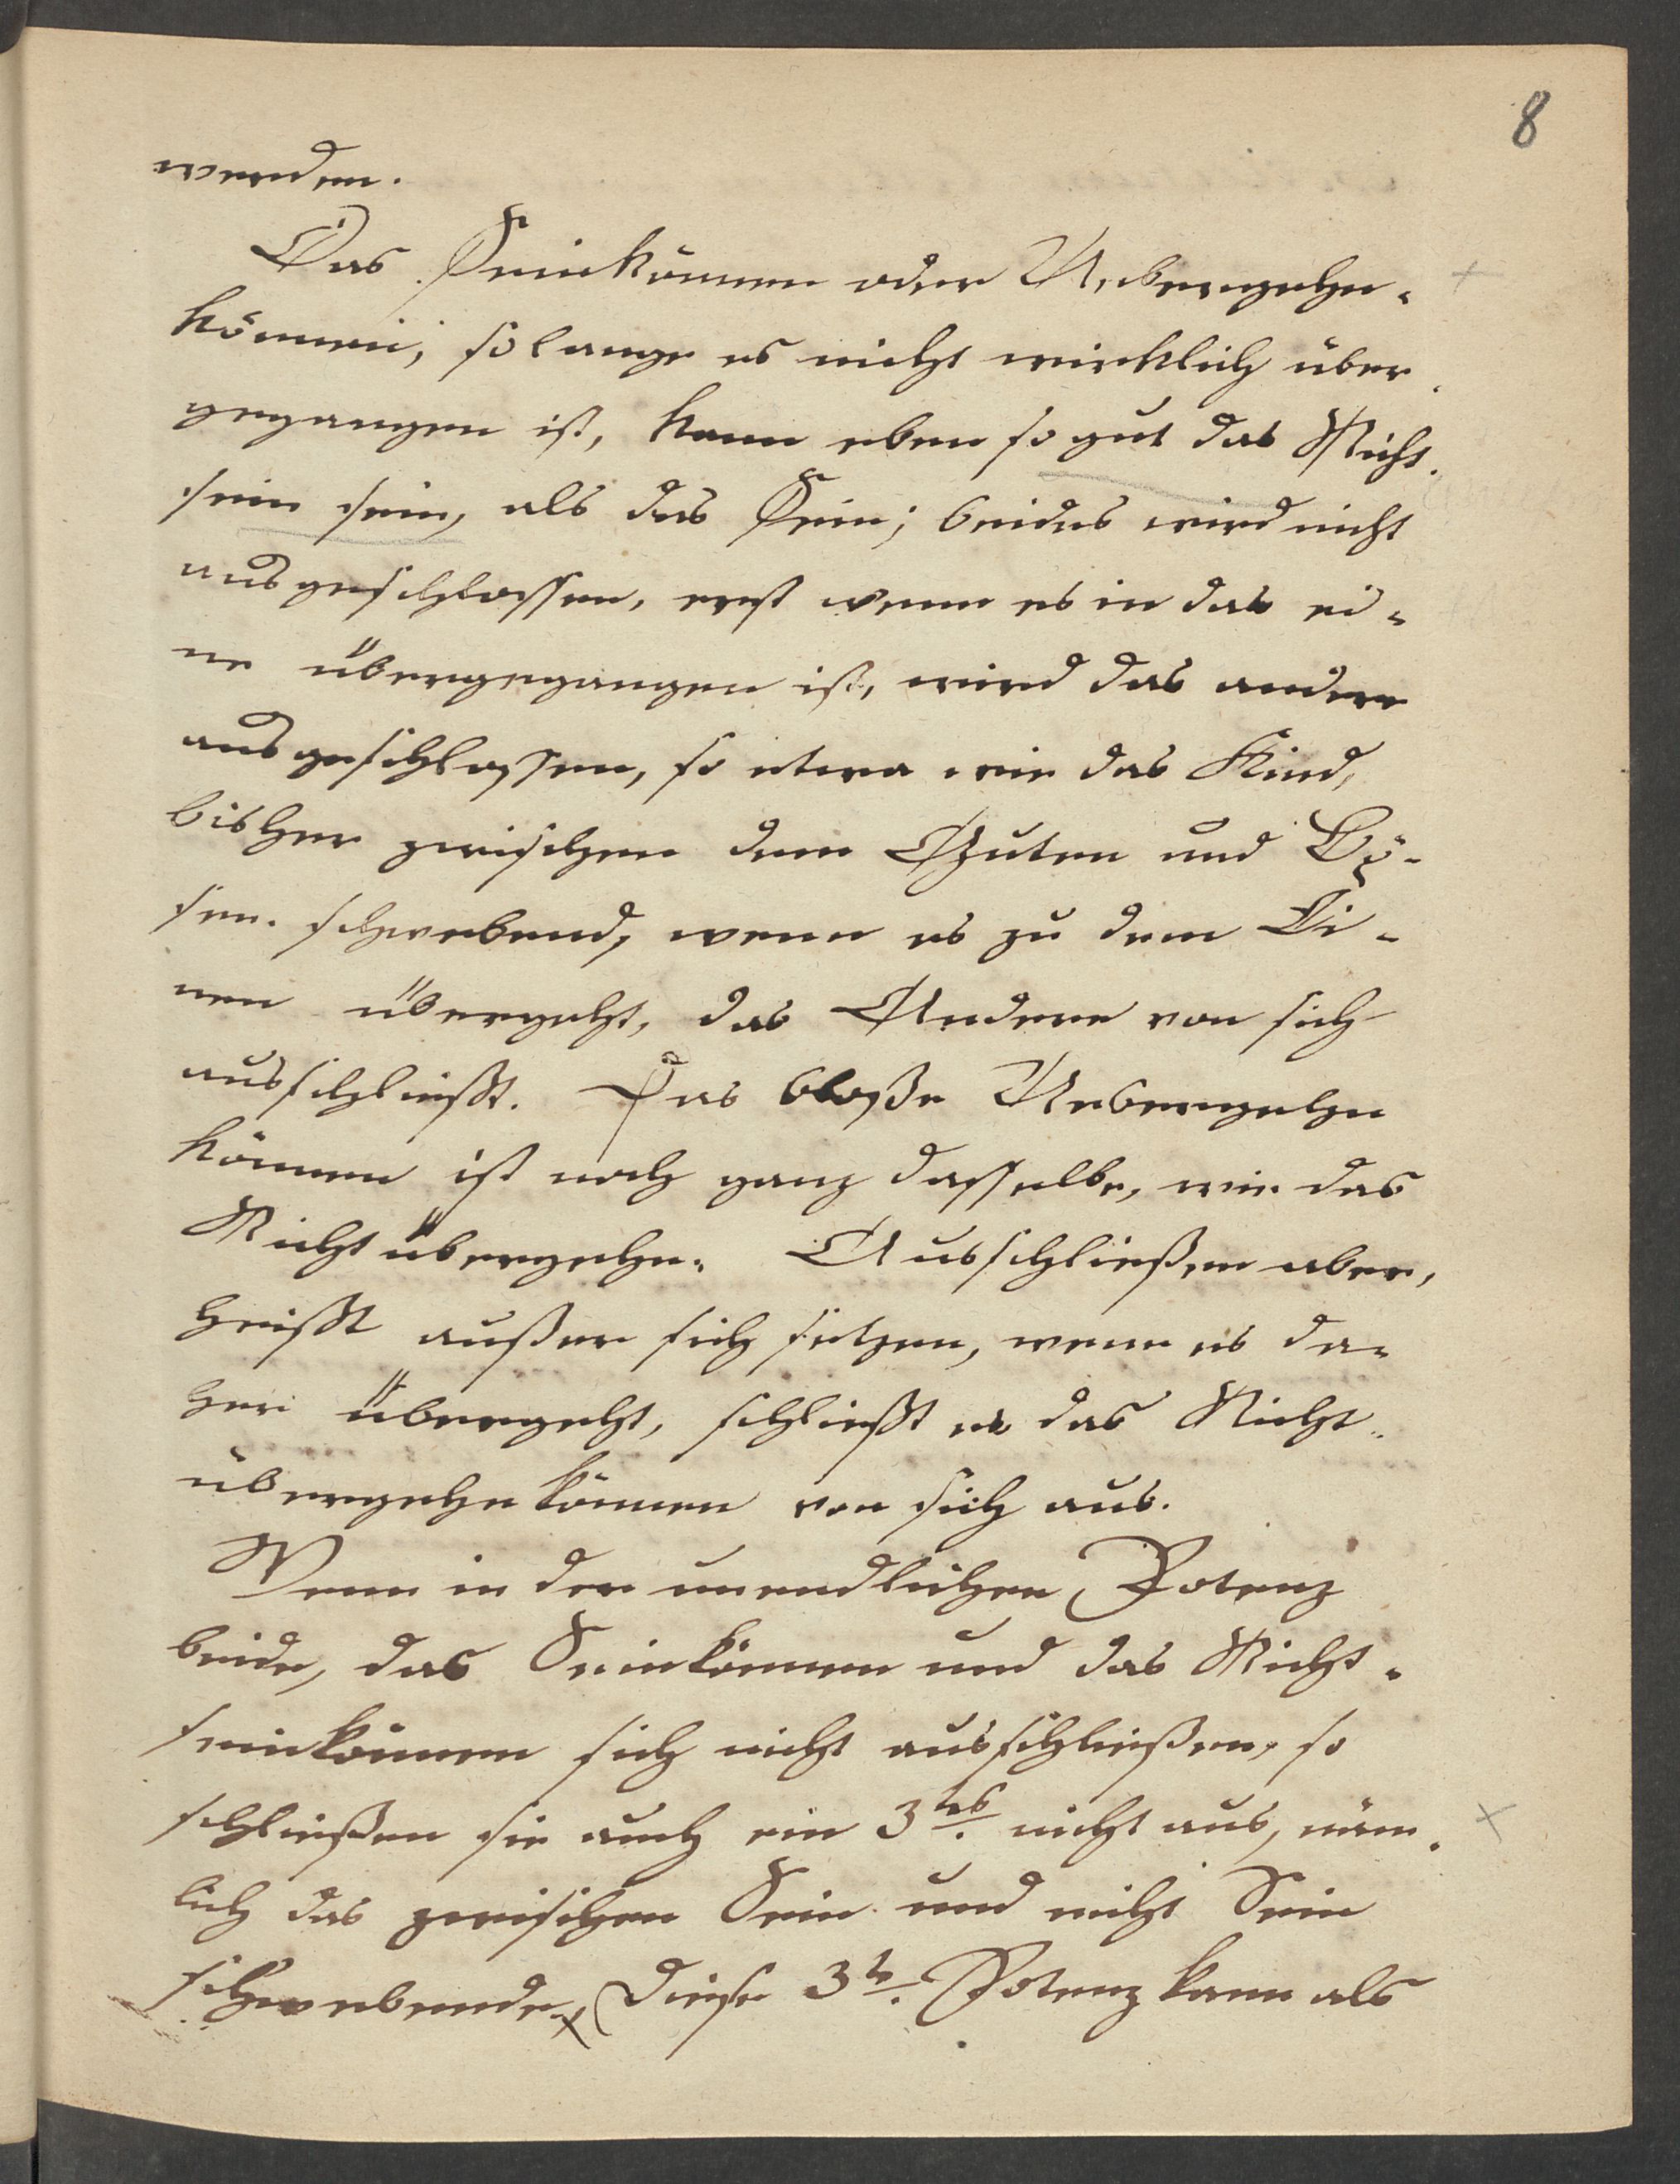 8
werden.
Das Seinkönnen oder Uebergehn-
können, solange es nicht wirklich über-
gegangen ist, kann eben so gut das Nicht-
sein sein, als das Sein; beides wird nicht
ausgeschlossen, erst wenn es in das ei-
ne übergegangen ist, wird das andere
ausgeschlossen, so etwa wie das Kind,
bisher zwischen dem Guten und Bö-
sen schwebend, wenn es zu dem Ei-
nen übergeht, das Andere von sich
ausschließt. Das bloße Uebergehn
können ist noch ganz dasselbe, wie das
Nichtübergehn. Ausschließen aber,
heißt außer sich setzen, wenn es da-
her übergeht, schließt es das Nicht-
übergehnkönnen von sich aus.
Wenn in der unendlichen Potenz
beide, das Seinkönnen und das Nicht-
seinkönnen sich nicht ausschließen, so
schließen sie auch ein 3tes nicht aus, näm-
lich das zwischen Sein und nicht Sein
schwebende, Diese 3te Potenz kann als